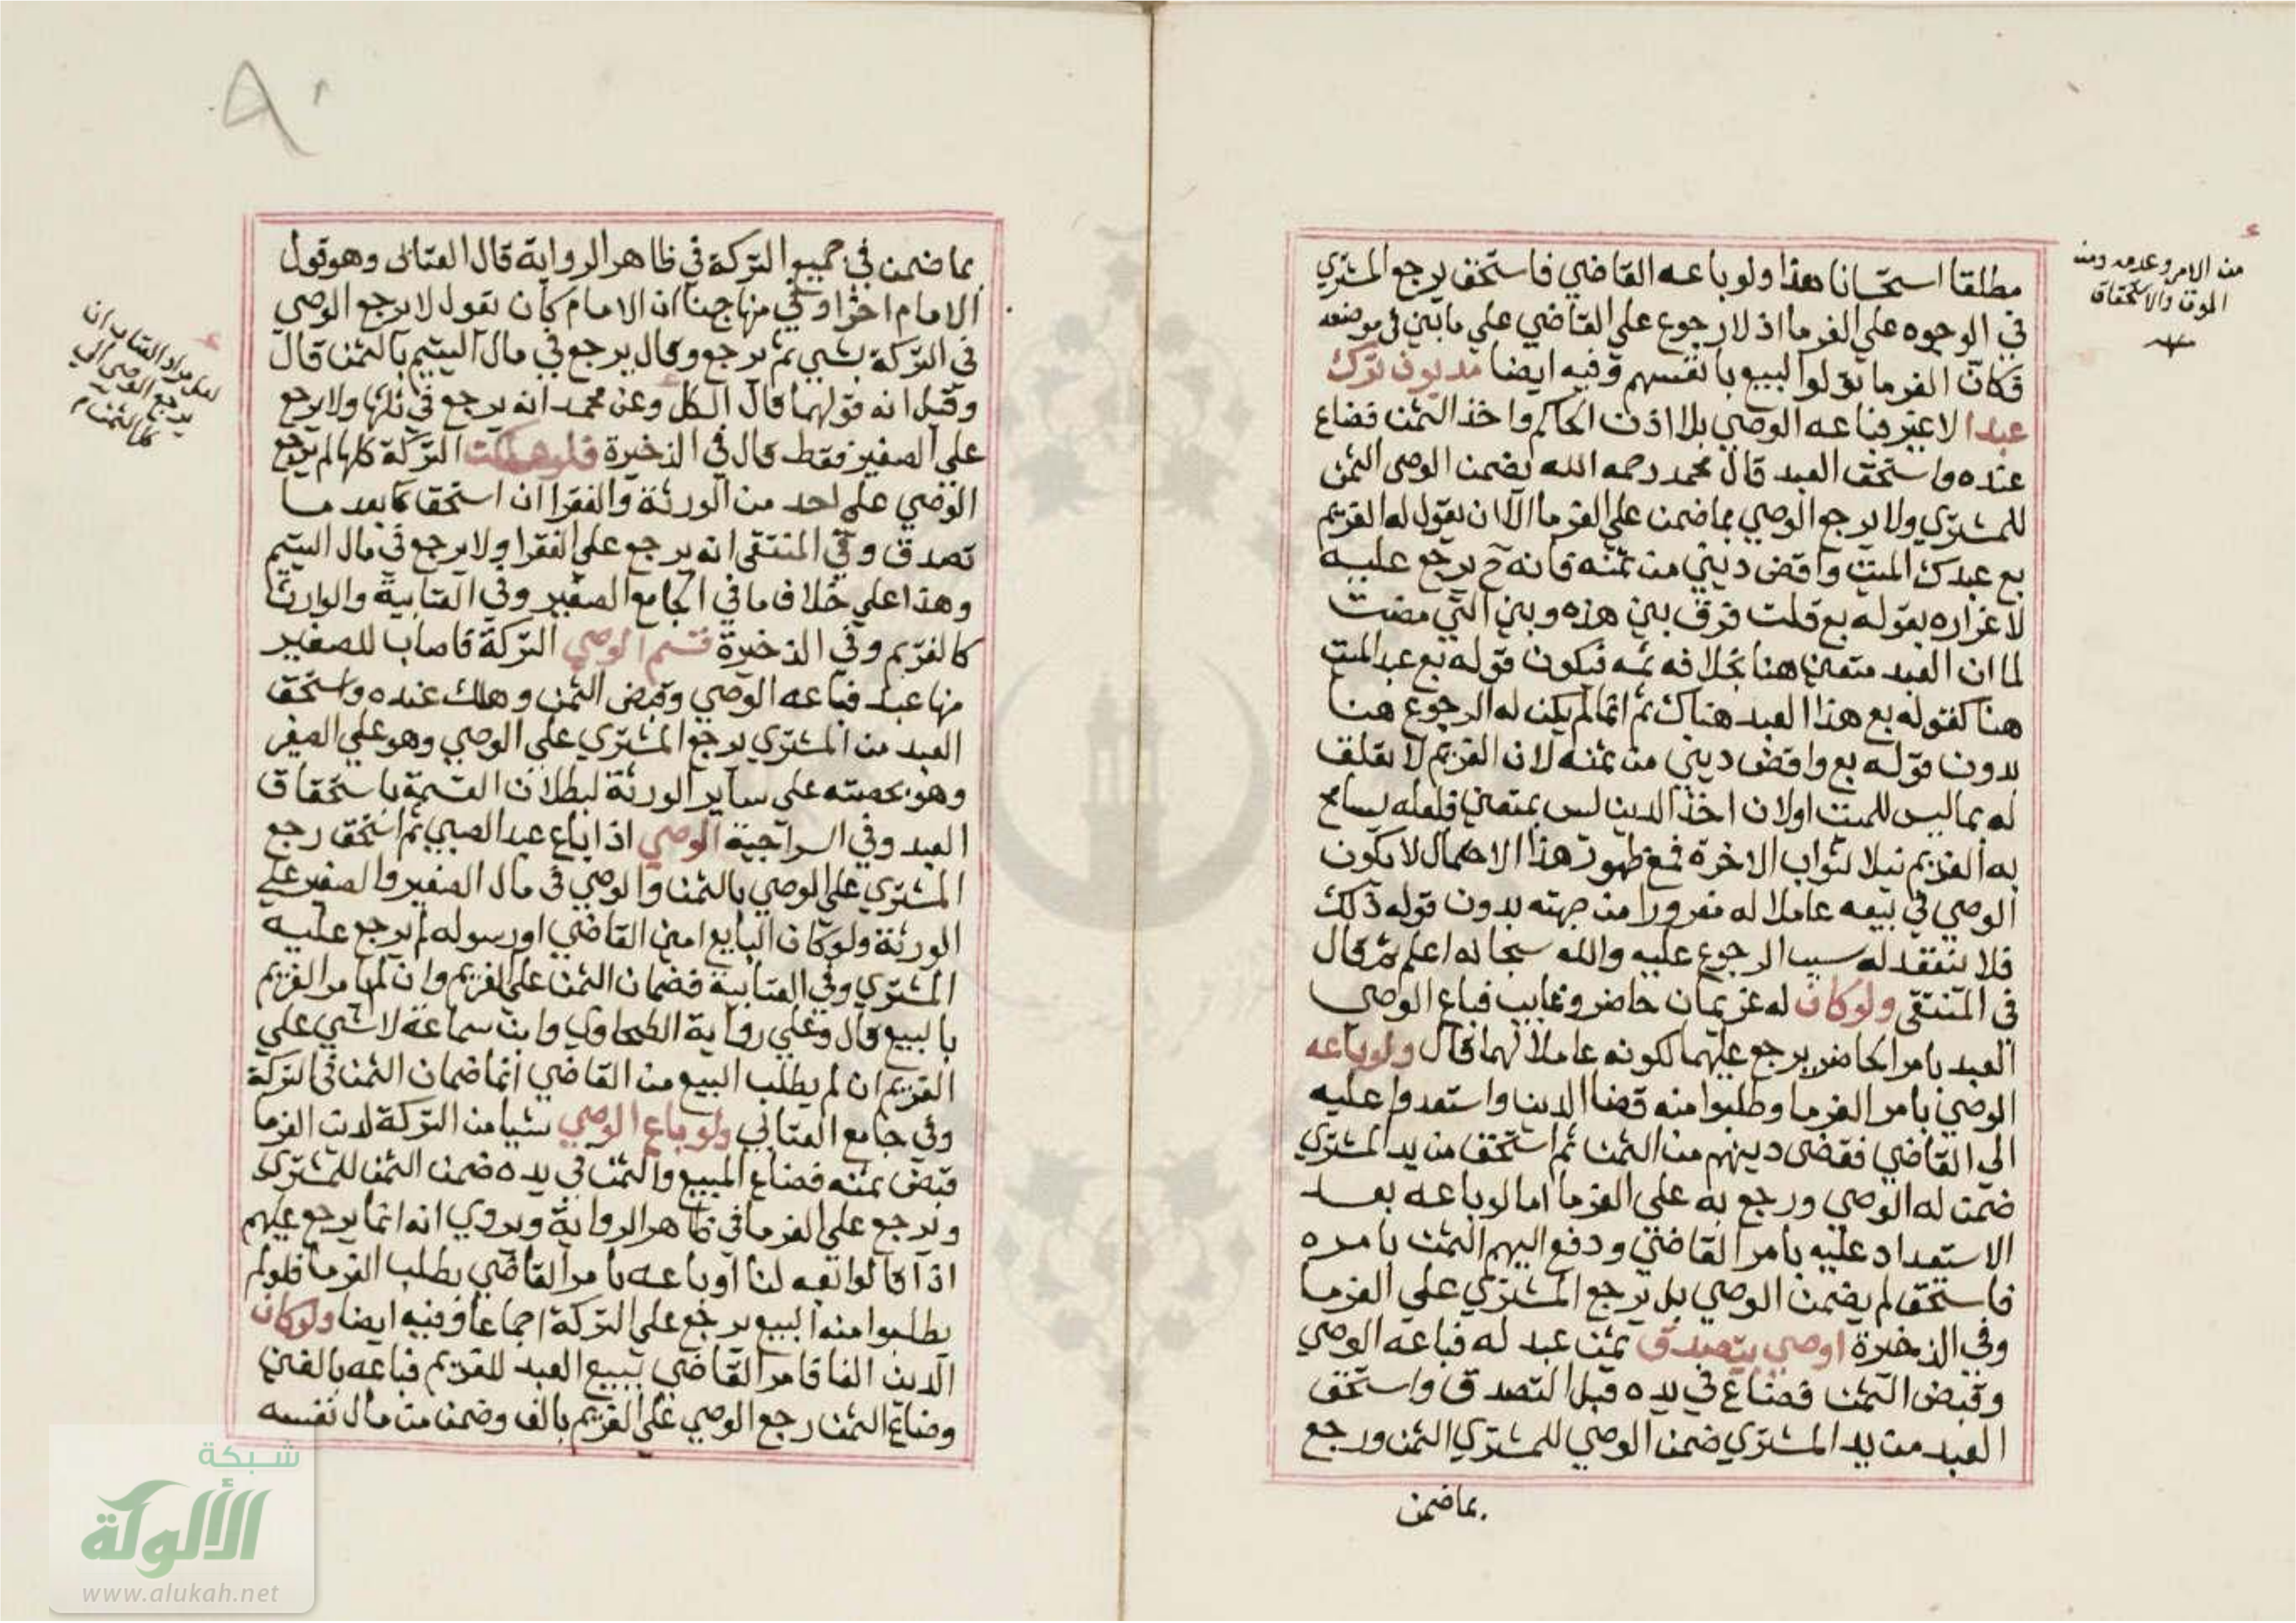 من الامر وعدمه ومن
الموت والاستحقاق
مطلقا استحسانا هذا ولو باعه القاضي فاستحق يرجع المشتري
في الوجوه علي الغرما اذ لا رجوع علي القاضي علي ما بين في موضعه
فكان الغرما تولوا البيع بانفسهم وفيه ايضا مديون ترك
عبدا لا غير فباعه الوصي بلا اذن الحاكم واخذ الثمن فضاع
عنده واستحق العبد قال محمد رحمه الله يضمن الوصي الثمن
للمشتري ولا يرجع الوصي بما ضمن علي الغرما الا ان يقول له الغريم
بع عبدك الميت واقض ديني من ثمنه فانه ح يرجع عليه
لاغراره بقوله بع قلت فرق بين هذه وبين التي مضت
لما ان العبد متعين هنا بخلافه ثمه فيكون قوله بع عبد الميت
هنا كقوله بع هذا العبد هناك ثم انما لم يكن له الرجوع هنا
بدون قوله بع واقض ديني من ثمنه لان الغريم لا تعلق
له بما ليس للميت اولان اخذ الدين ليس بمتعين فلعله يسامح
به الغريم نيلا لثواب الاخرة فمع ظهور هذا الاحتمال لا يكون
الوصي في بيعه عاملا له مغرورا من جهته بدون قوله ذلك
فلا ينعقد له سبب الرجوع عليه والله سبحانه اعلم ثم قال
في المنتقى ولو كان له غريمان حاضر وغايب فباع الوصي
العبد بامر الحاضر يرجع عليهما لكونه عاملا لهما قال ولو باعه
الوصي بامر الغرما وطلبوا منه قضا الدين واستعدوا عليه
الي القاضي فقضى دينهم من الثمن ثم استحق من يد المشتري
ضمن له الوصي ورجع به علي الغرما اما لو باعه بعد
الاستعداد عليه بامر القاضي ودفع اليهم الثمن بامره
فاستحق لم يضمن الوصي بل يرجع المشتري علي الغرما
وفي الذخيرة اوصي بتصدق ثمن عبد له فباعه الوصي
وقبض الثمن فضاع في يده قبل التصدق واستحق
العبد من يد المشتري ضمن الوصي للمشتري الثمن ورجع
بما ضمن
بما ضمن في جميع التركة في ظاهر الرواية قال العتابي وهو قول
الامام اخرا وفي منهاجنا ان الامام كان يقول لا يرجع الوصي
في التركة بشي ثم رجع وقال يرجع في مال اليتيم بالثمن قال
وقيل انه قولهما قال الكل وعن محمد انه يرجع في ثلثها ولا يرجع
علي الصغير فقط قال في الذخيرة فلو هلكت التركة كلها لم يرجع
الوصي علي احد من الورثة والفقرا ان استحق كا بعد ما
تصدق وفي المنتقى انه يرجع علي الفقرا ولا يرجع في مال اليتيم
وهذا علي خلاف ما في الجامع الصغير وفي العتابية والوارث
كالغريم وفي الذخيرة قسم الوصي التركة فاصاب للصغير
منها عبد فباعه الوصي وقبض الثمن وهلك عنده واستحق
العبد من المشتري يرجع المشتري علي الوصي وهو علي الصغير
وهو بحصته علي ساير الورثة لبطلان القسمة باستحقاق
العبد وفي السراجية الوصي اذا باع عبد الصبي ثم استحق رجع
المشتري علي الوصي بالثمن والوصي في مال الصغير والصغير علي
الورثة ولو كان البايع امين القاضي او رسوله لم يرجع عليه
المشتري وفي العتابية فضمان الثمن علي الغريم وان لم يامر الغريم
بالبيع قال وعلي رواية الطحاوي وابن سماعة لا شي علي
الغريم ان لم يطلب البيع من القاضي انما ضمان الثمن في التركة
وفي جامع العتابي ولو باع الوصي شيا من التركة لدين الغرما
قبض ثمنه فضاع المبيع والثمن في يده ضمن الثمن للمشتري
ويرجع علي الغرما في ظاهر الرواية ويروي انه انما يرجع عليهم
اذا قالوا بعه لنا او باعه بامر القاضي بطلب الغرما فلو لم
يطلبوا منه البيع يرجع علي التركة اجماعا وفيه ايضا ولو كان
الدين الفا فامر القاضي ببيع العبد للغريم فباعه بالفين
وضاع الثمن رجع الوصي علي الغريم بالف وضمن من مال نفسه
لعل مراد العتابي ان
يرجع الوصي الي
كل الثمن
شبكة
الألوكة
www.alukah.net